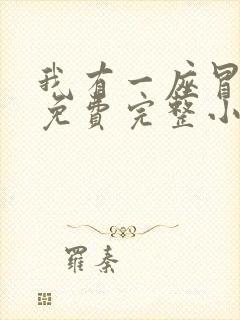 我有一座冒
免费完整小
羅秦